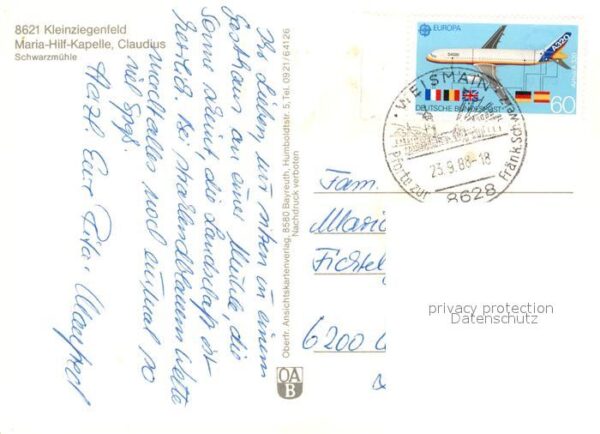 8621 Kleinziegenfeld
Maria-Hilf-Kapelle, Claudius
Schwarzmühle
Ihr Lieben, wir sitzen in einem
Gasthaus an einer Mühle, die
Sonne scheint, die Landschaft ist
herrlich. Bei strahlendblauem Wetter
macht alles noch einmal so
viel Spaß.
Herzl. Eure Rita, Manfred
Oberfr. Ansichtskartenverlag, 8580 Bayreuth, Humboldtstr. 5, Tel. 0921/64126
Nachdruck verboten
OA
B
EUROPA
A320
DEUTSCHE BUNDESPOST
60
WEISMAIN
Pforte zur Fränk. Schweiz
23.9.88-18
8628
Fam.
Mario
Fichtel
6200
privacy protection
Datenschutz